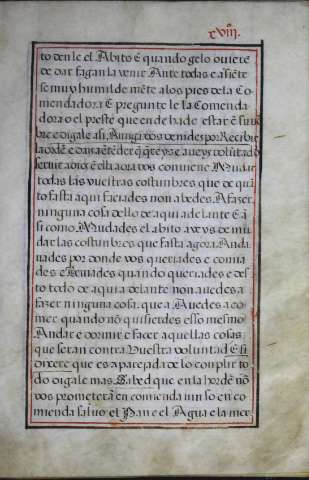 cviij.
to denle el Abito E quando gelo ouiere
de dar fagan la venir Ante todas e asiete
se muy humil de mēte alos pies dela Co
mendadora E pregunte le la Comenda
dora o el preste que en de hade estar
bre e digale asi, Amiga vos venides por Recibir
la ordē e dar a entēder q̄
seruir a dios e ella aora vos conuiene Mudar
todas las vuestras costunbres que de quā
to fasta aqui faciades non abedes. A faser
ninguna cosa dello de aqui adelante E a
si como Mudades el abito aveys de mu
dar las costunbres que fasta agora. Anda
uades por donde vos queriades e comia
des e Beuiades quando queriades e des
to todo de aqui adelante non avedes a
faser ninguna cosa. que a Avedes a co
mer quando nō quisierdes esso mesmo
Andar e dormir e facer aquellas cosas
que seran contra Vuestra voluntad E si
dixere que es aparejada de lo conplir to
do digale mas. Sabed que en la hordē nō
vos prometerā en comienda nin so en co
mienda saluo el Pan e el Agua e la mer